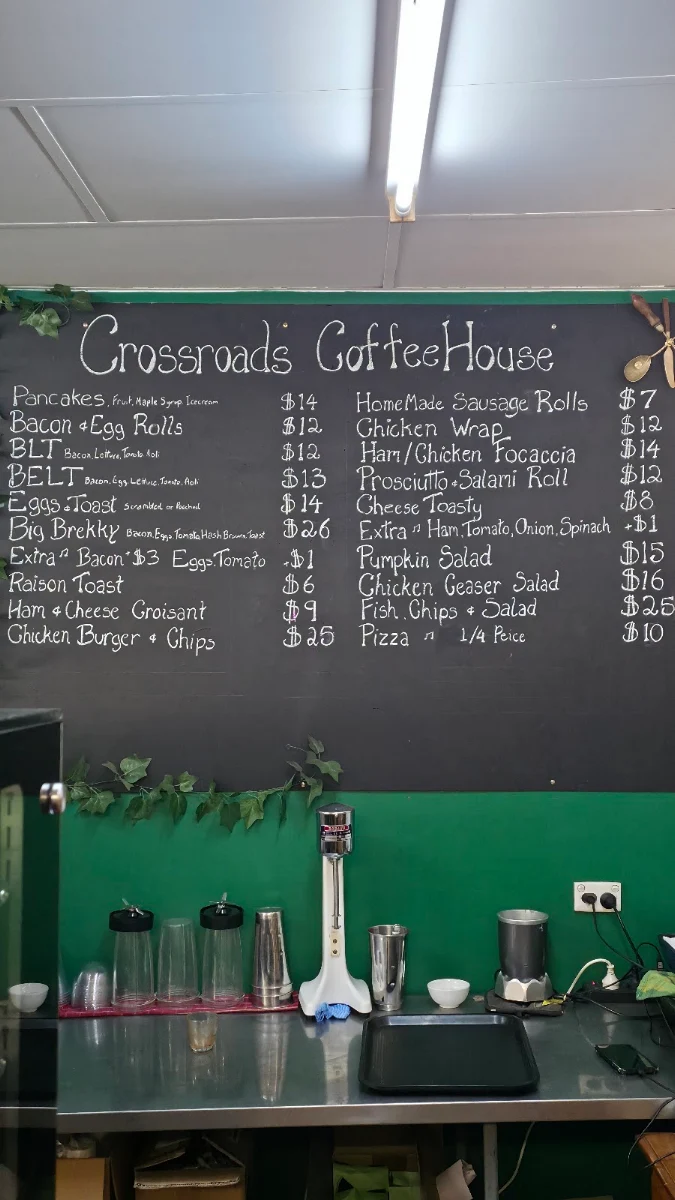 Crossroads CoffeeHouse
Pancakes. Fruit, Maple Syrup Icecream $14
Bacon & Egg Rolls $12
BLT Bacon, Lettuce, Tomato, Aoli $12
BELT Bacon, Egg, Lettuce, Tomato, Aoli $13
Eggs & Toast Scrambled or Poached $14
Big Brekky Bacon, Eggs, Tomato, Hash Brown, Toast $26
Extra " Bacon + $3 Eggs. Tomato +$1
Raison Toast $6
Ham & Cheese Croisant $9
Chicken Burger & Chips $25
HomeMade Sausage Rolls $7
Chicken Wrap $12
Ham/Chicken Focaccia $14
Prosciutto & Salami Roll $12
Cheese Toasty $8
Extra " Ham, Tomato, Onion, Spinach +$1
Pumpkin Salad $15
Chicken Ceaser Salad $16
Fish, Chips & Salad $25
Pizza " 1/4 Peice $10